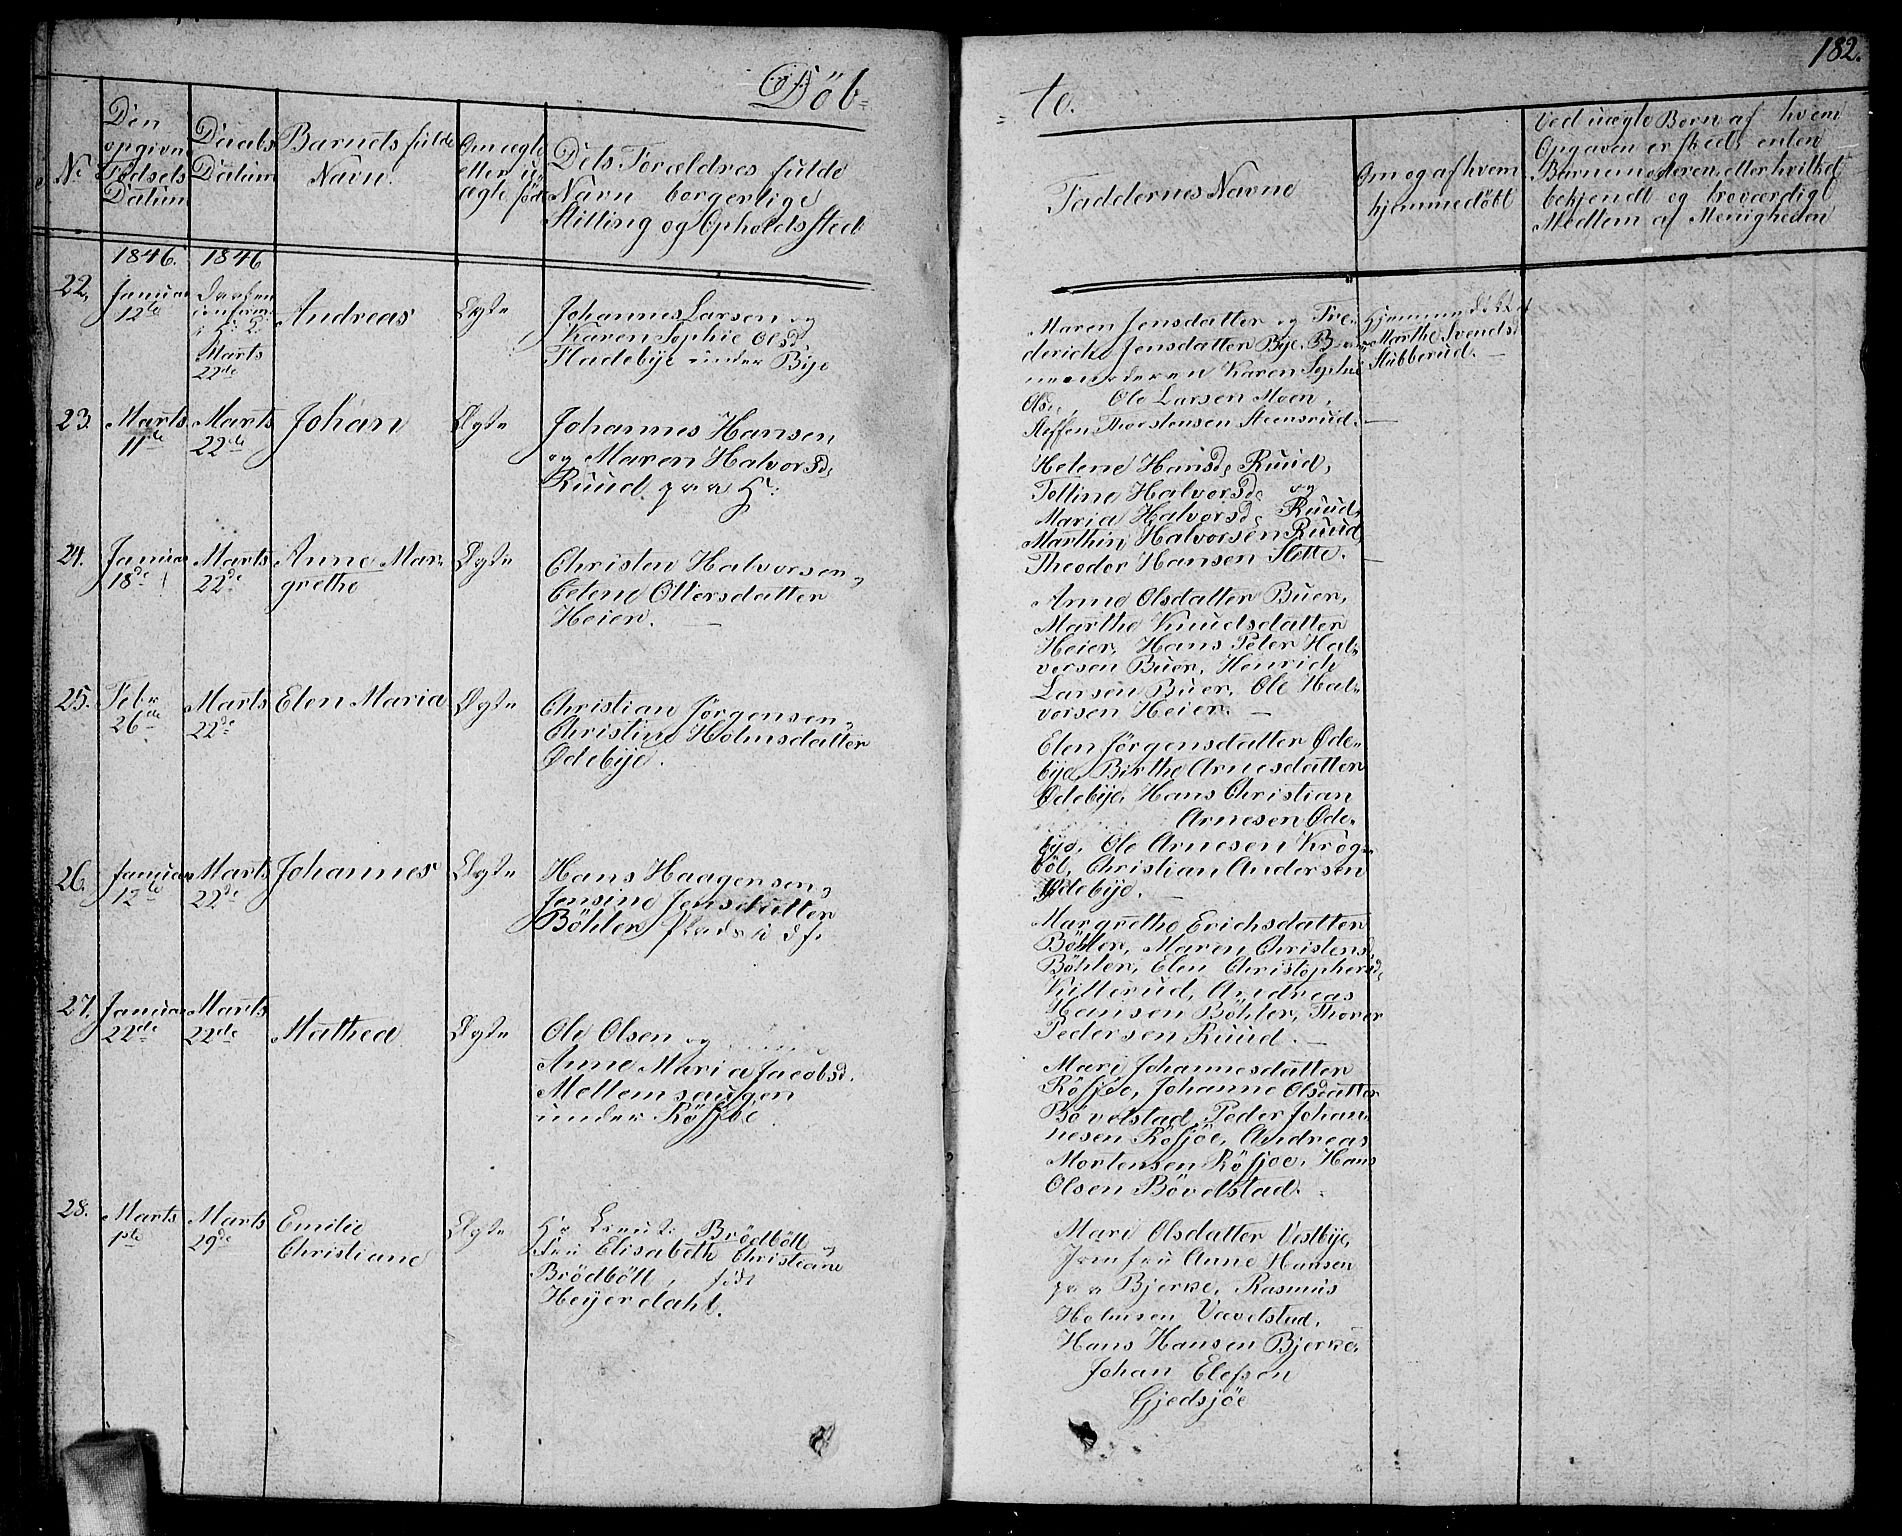 182.
Döb=
=te.
No
Den opgivne Fødsels Datum
Daabs Datum
Barnets fulde Navn.
Om ægte eller uægte født
Dets Forældres fulde Navn borgerlige Stilling og Opholdssted
Faddernes Navne
Om og af hvem hjemmedöbt
Ved uægte Børn af hvem Opgaven er skeet, enten Barnemoderen, eller hvilket bekjendt og troværdigt Medlem af Menigheden
1846. 1846
22. Januar 12te
Daaben confirm. i H: K: Marts 22de
Andreas
Ægte
Johannes Larsen og
Karen Sophie Olsd.
Fladebÿe under Bÿe
Maren Jensdatter og Fre-
dericke Jensdatter Bÿe, Bar-
nemoderen Karen Sophie
Olsd., Ole Larsen Moen,
Steffen Thorstensen Steensrud.
Hjemmedöbt af
Marthe Svends.
Stubberud.
23. Marts 11te
Marts 22de
Johan
Ægte
Johannes Hansen
og Maren Halvorsd.
Ruud paa H:
Helene Hansd. Ruud,
Tolline Halvorsd. og
Maria Halvorsd. Ruud,
Marthin Halvorsen Ruud
Theodor Hansen Slette.
24. Januar 18de
Marts 22de
Anne Mar-
grethe
Ægte
Christen Halvorsen,
Celene Ottersdatter
Heier.
Anne Olsdatter Buer,
Marthe Knudsdatter
Heier, Hans Peter Hal-
vorsen Buer, Henrich
Larsen Buer, Ole Hal-
vorsen Heier.
25. Febr 26de
Marts 22de
Elen Maria
Ægte
Christian Jørgensen,
Christine Holmsdatter
Ødebÿe.
Elen Jørgensdatter Øde-
bÿe, Birthe Arnesdatter
Ødebÿe, Hans Christian
Arnesen Øde-
bÿe, Ole Arnesen Krog-
böl, Christian Andersen
Ødebÿe.
26. Januar 12te
Marts 22de
Johannes
Ægte
Hans Haagensen,
Jensine Jensdatter
Böhler Plads
Margrethe Erichsdatter
Böhler, Maren Christensd.
Böhler, Elen Christophersd.
Kitterud, Andreas
Hansen Böhler, Thorer
Pedersen Ruud.
27. Januar 22de
Marts 22de
Mathea
Ægte
Ole Olsen og
Anne Maria Jacobsd.
Mellemsaugen
under Rösjöe.
Mari Johannesdatter
Rösjöe, Johanne Olsdatter
Bövelstad, Peder Johan-
nesen Rösjöe, Andreas
Mortensen Rösjöe, Hans
Olsen Bövelstad.
28. Marts 1ste
Marts 29de
Emilie
Christiane
Ægte
Hr Lieut: Brödböll og
Fru Elisabeth Christiane
Brödböll, født
Heÿerdahl.
Mari Olsdatter Vestbÿe,
Jomfru Anne Hansen
paa Bjerke, Rasmus
Holmsen Vævelstad,
Hans Hansen Bjerke,
Johan Elefsen
Gjedsjöe